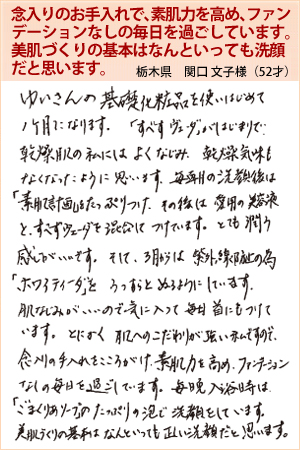 念入りのお手入れで、素肌力を高め、ファン
デーションなしの毎日を過ごしています。
美肌づくりの基本はなんといっても洗顔
だと思います。
栃木県 関口 文子様（52才）
ゆいさんの基礎化粧品を使いはじめて
1ケ月になります。「すべすヴェーダ」がはじまりで…
乾燥肌の私にはよくなじみ、乾燥気味も
なくなったように思います。毎晩の洗顔後は
「素肌計画」をたっぷりつけ、その後は愛用の美容液
と、すべすヴェーダを混ぜてつけています。とても潤う
感じがいいです。そして、3月からは紫外線防止の為
「ホワイティーダ」をうっすらとぬるようにしています。
肌なじみがいいので気に入って毎日首にもつけて
います。とにかく肌へのこだわりが強いほうですので、
念入りの手入れをこころがけ、素肌力を高め、ファンデーション
なしの毎日を過ごしています。毎日晩入浴時は、
「ごまくりあソープ」のたっぷりの泡で洗顔をしています。
美肌づくりの基本はなんといっても正しい洗顔だと思います。